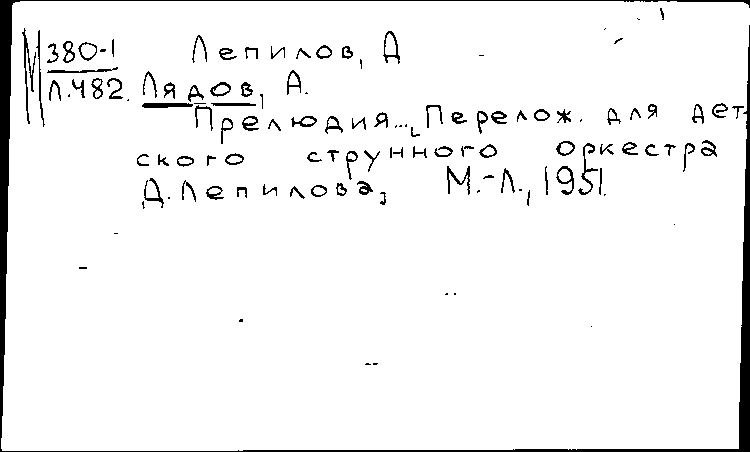 М 380-1 Лепилов, Д
Л.482. Лядов, А.
Прелюдия... [Перелож. для дет-
ского струнного оркестра
Д. Лепилова] М.-Л., 1951.